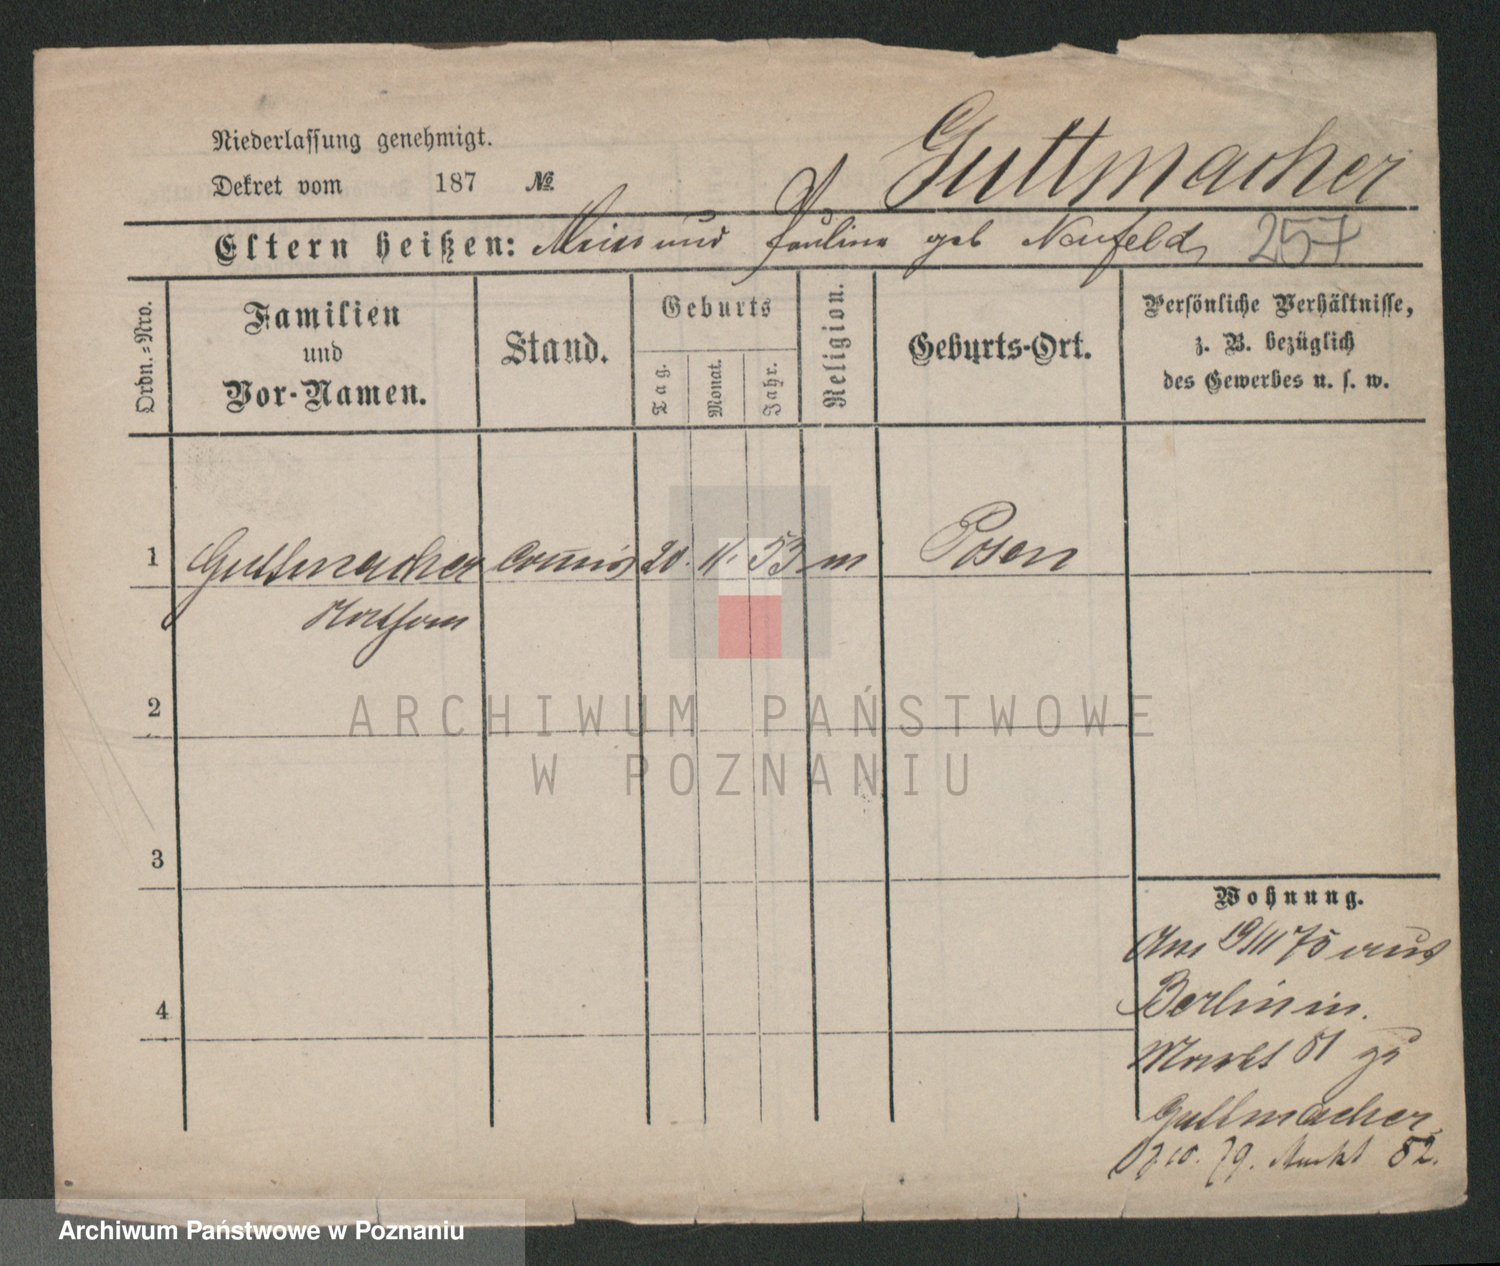 Niederlassung genehmigt.
Dekret vom 187 №
Guttmacher
Eltern heißen: Meier und Pauline geb Neufeld
257
Ordn.-Nro.
Familien
und
Vor-Namen.
Stand.
Geburts
Tag.
Monat.
Jahr.
Religion.
Geburts-Ort.
Persönliche Verhältnisse,
z. B. bezüglich
des Gewerbes u. s. w.
1 Guttmacher Commis 20. 11. 53 m Posen
2
3
4
Wohnung.
Am 19/11 75 aus
Berlin in.
Markt 51 zu
Guttmacher
10. 79. Markt 52.
ARCHIWUM PAŃSTWOWE
W POZNANIU
Archiwum Państwowe w Poznaniu